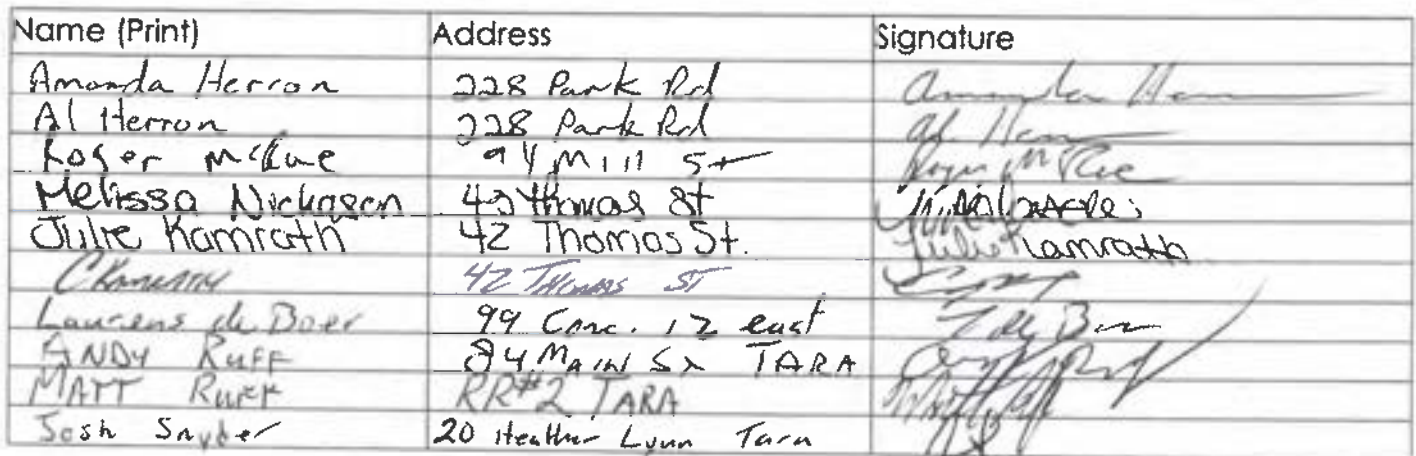 Name (Print) Address Signature
Amanda Herron 228 Park Rd Amanda Herron
Al Herron 228 Park Rd Al Herron
Roger McCue 94 Mill St Roger McCue
Melissa Nickason 42 Thomas St
Julie Kamrath 42 Thomas St. Julie Kamrath
C Kamrath 42 Thomas ST
Laurens de Boer 99 Conc. 12 east
ANDY RUFF 84 Main St TARA
MATT RUFF RR#2 TARA
Josh Snyder 20 Heather Lynn Tara